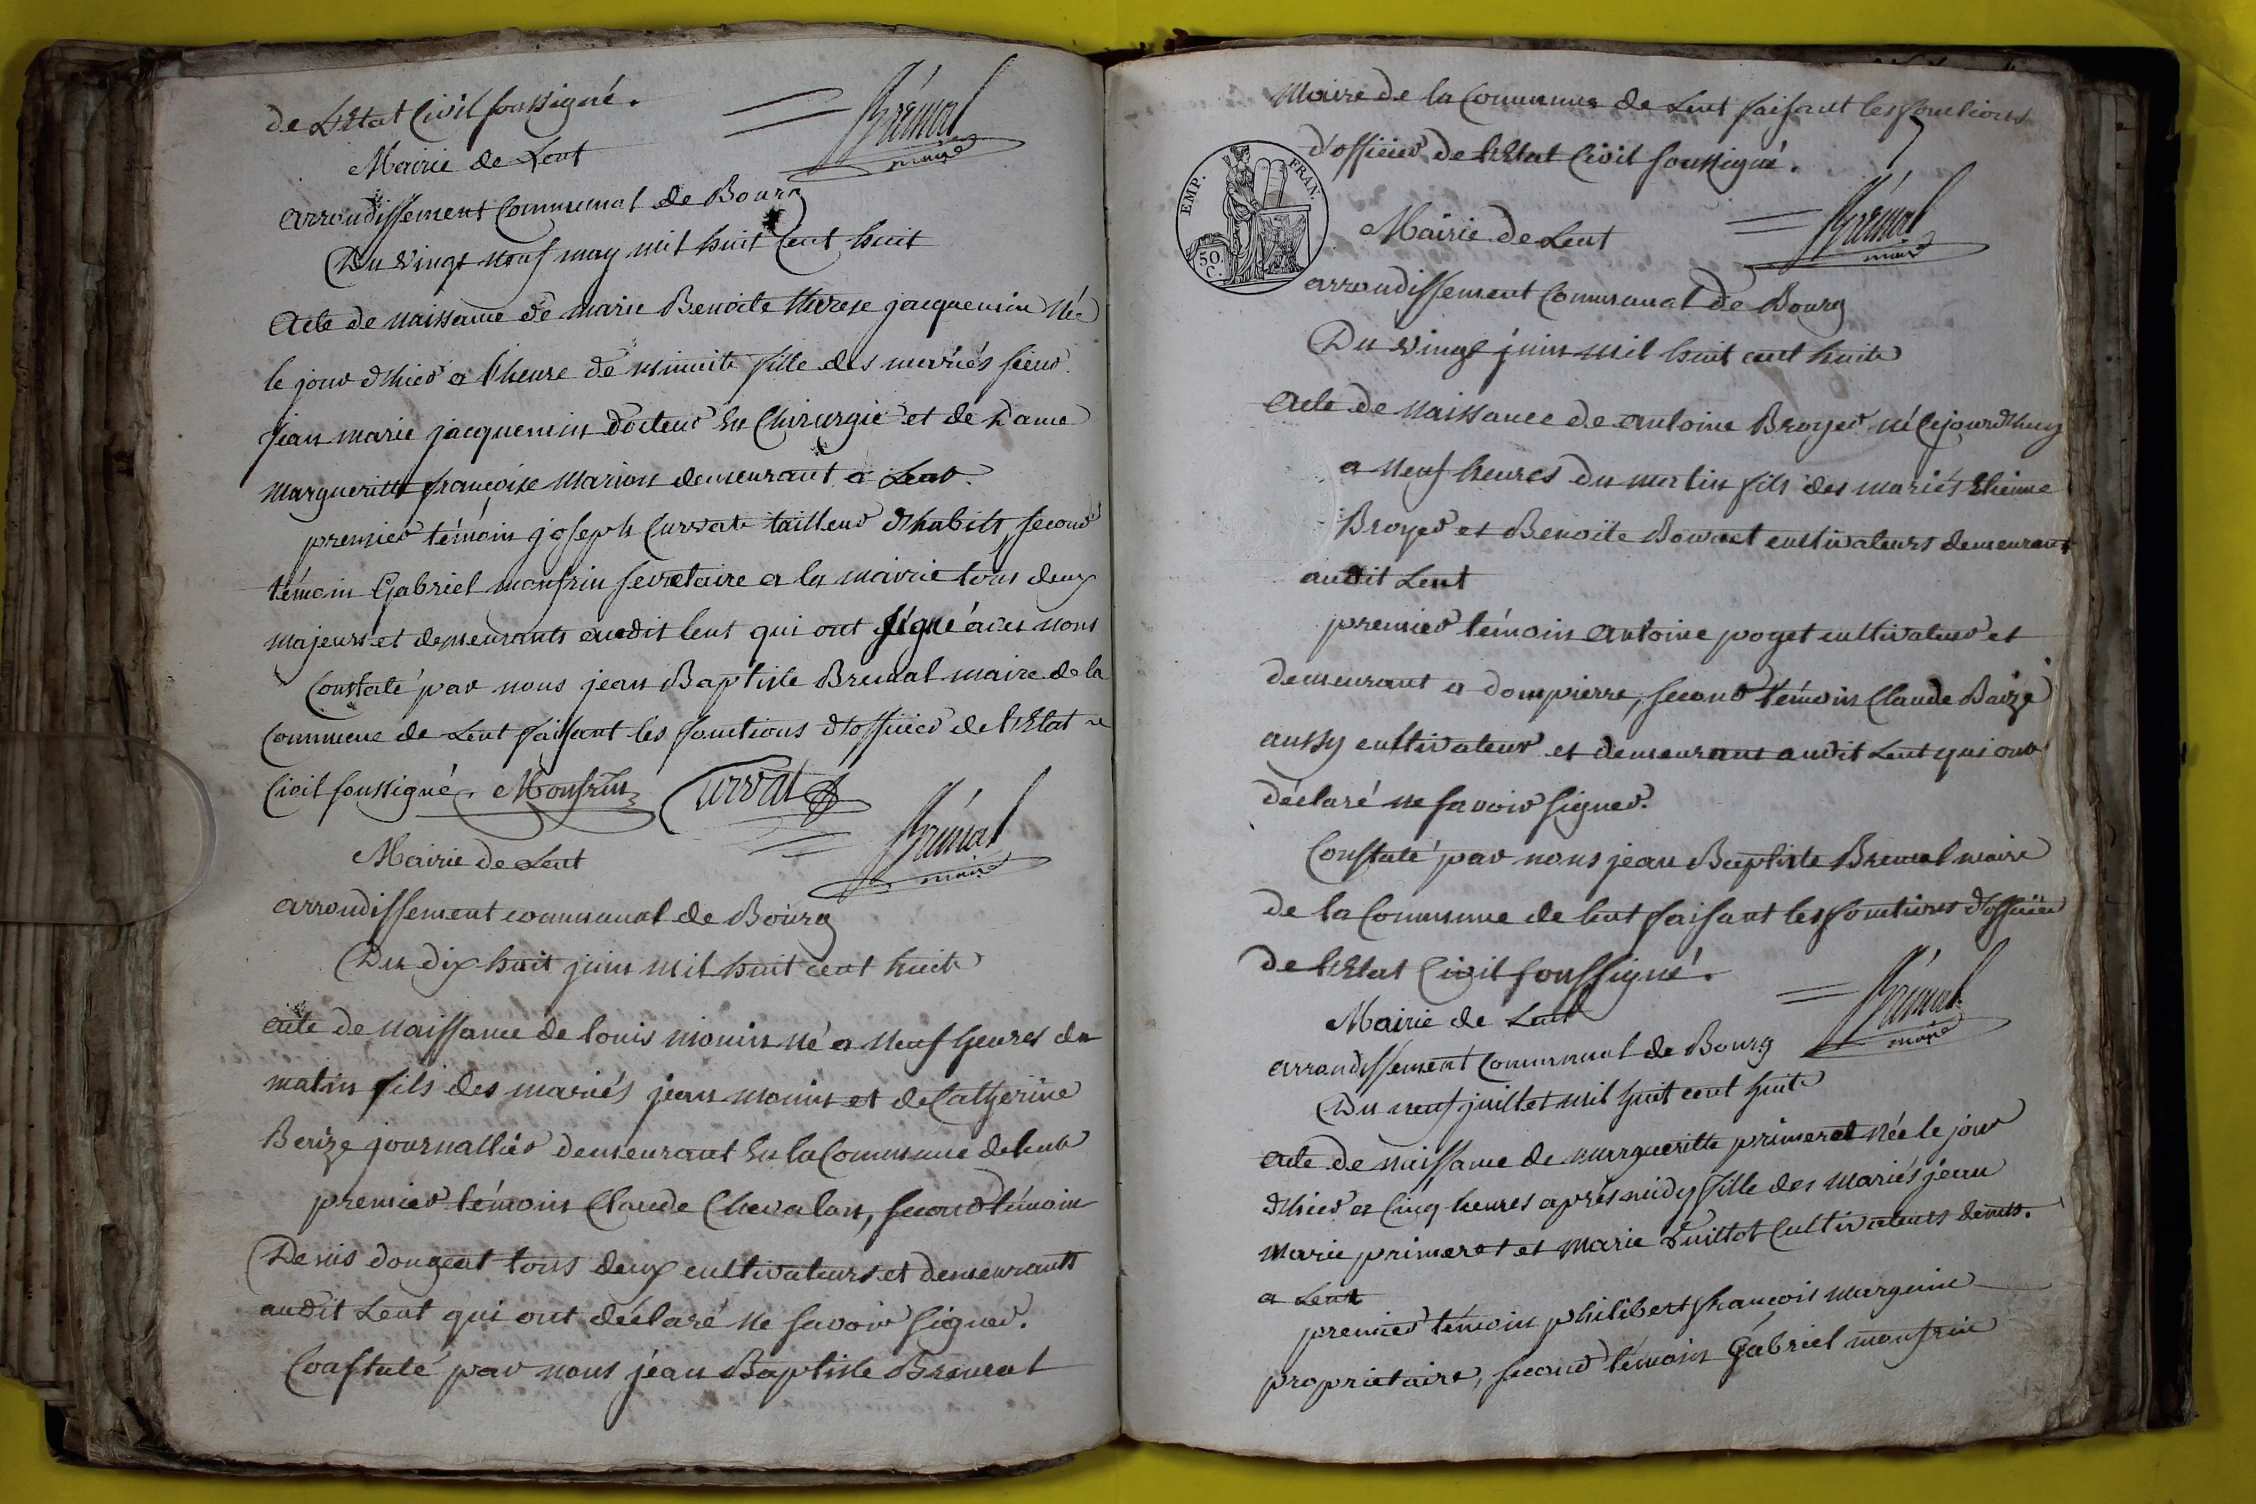 de L'Etat Civil soussigné.
Brémal
maire
Mairie de Lent
arrondissement Communal de Bourg
Du vingt neuf may mil huit Cent huit
Acte de naissance de marie Benoite therese jacquemin Née
le jour d'hier a l'heure de minuite fille des mariés sieur
jean marie jacquemin docteur En Chirurgie et de Dame
margueritte françoise Marion demeurant a Lent.
premier témoin joseph Curvat tailleur d'habits, second
témoin Gabriel monfrin secretaire a la mairie tous deux
majeurs et demeurants audit lent qui ont signé avec nous
Constaté par nous jean Baptiste Bremal maire de la
Commune de Lent faisant les fonctions d'officier de l'Etat
Civil soussigné. Monfrin Curvat
Brémal
maire
Mairie de Lent
arrondissement communal de Bourg
Du dix huit juin mil huit cent huit
acte de Naissance de louis monin né a neuf heures du
matin fils des mariés jean monin et de Catherine
Berize journallier demeurant En la Commune de lent
premier témoin Claude Chevalon, second témoin
Denis dougeat tous deux cultivateurs et demeurants
audit Lent qui ont déclaré ne savoir signer.
Constaté par nous jean Baptiste Bremal
Maire de la Commune de Lent faisant les fonctions
d'officier de l'Etat Civil soussigné.
EMP. FRAN.
50.
C.
Brémal
maire
Mairie de Lent
arrondissement Communal de Bourg
Du vingt juin mil huit cent huit
Acte de Naissance de antoine Broyer né Cejourd'huy
a neuf heures du matin fils des mariés Etienne
Broyer et Benoite Bouvet cultivateurs demeurant
audit Lent
premier témoin Antoine poget cultivateur et
demeurant a dompierre, second témoin Claude Baizé
aussy cultivateur et demeurant audit Lent qui ont
déclaré ne savoir signer.
Constaté par nous jean Baptiste Bremal maire
de la Commune de lent faisant les fonctions d'officier
de l'Etat Civil soussigné.
Brémal
maire
Mairie de Lent
arrondissement Communal de Bourg
Du neuf juillet mil huit cent huit
acte de naissance de margueritte primerat née le jour
d'hier a Cinq heures après midy fille des mariés jean
marie primerat et marie Guillot Cultivateurs demts.
a Lent
premier témoin philibert françois marguin
proprietaire, second témoin Gabriel monfrin